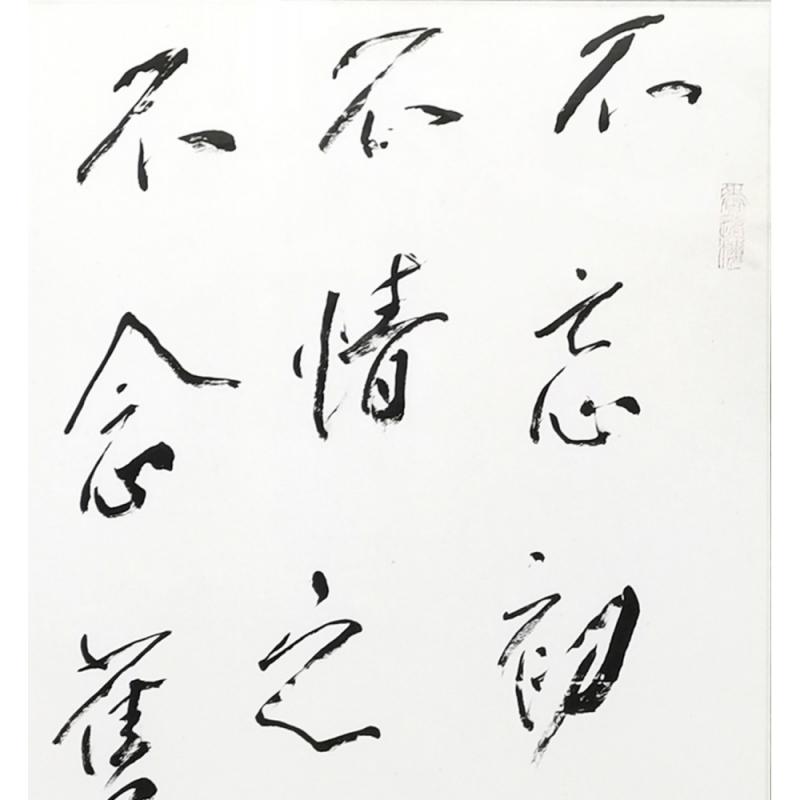 不忘初
不情之
不念舊